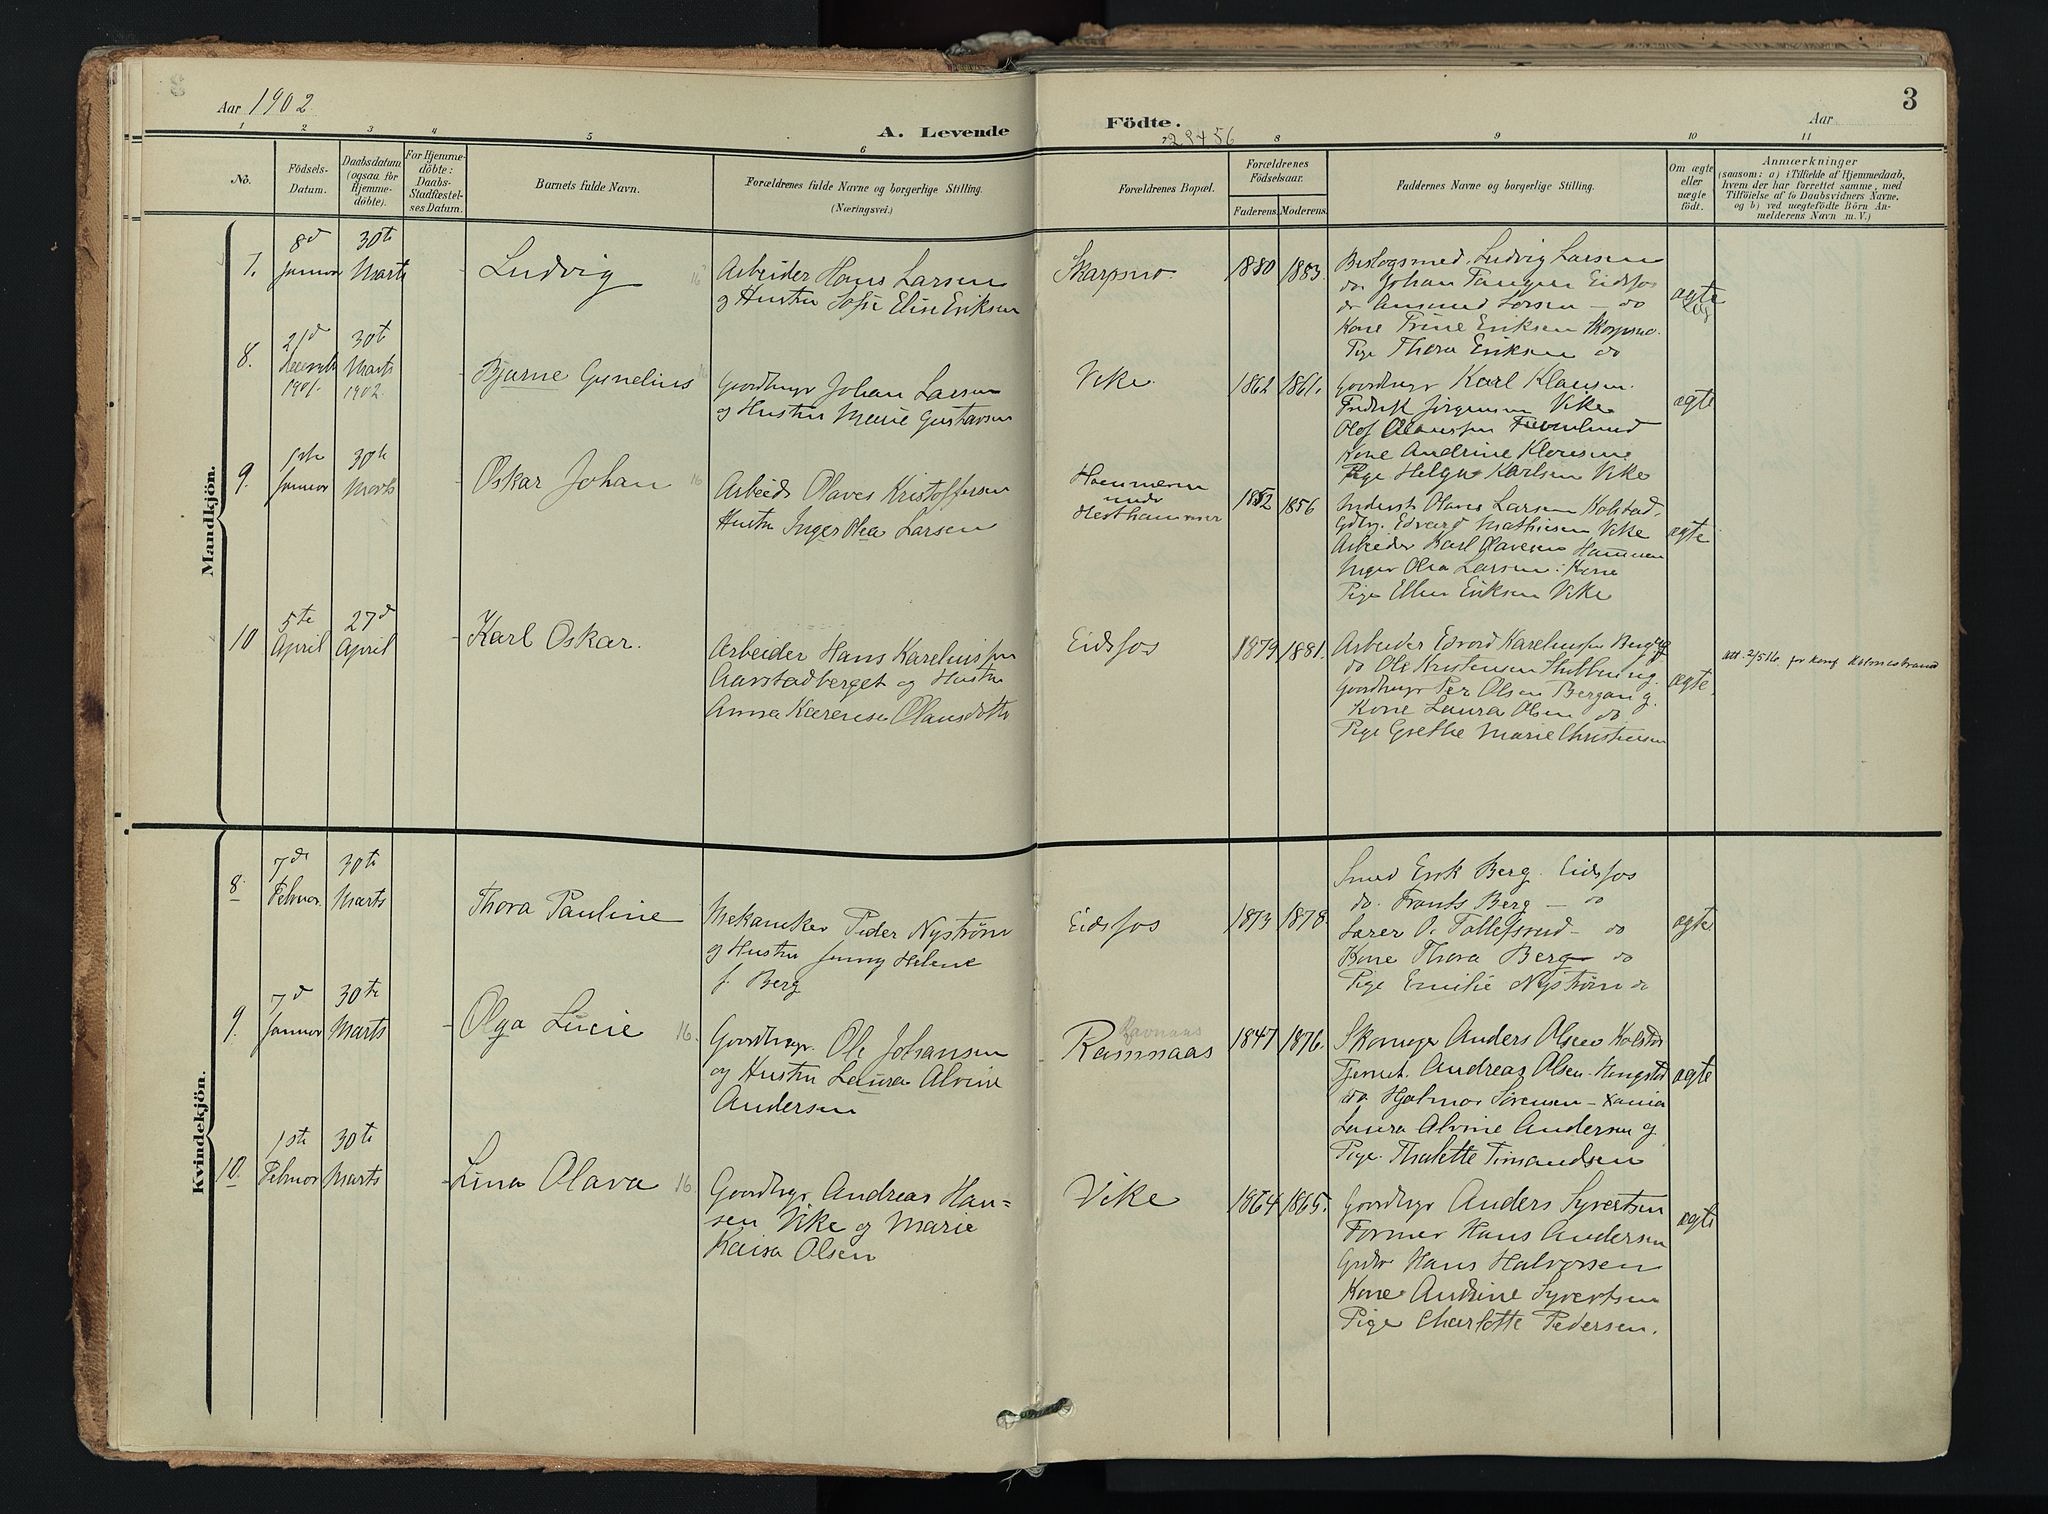 Aar 1902
A. Levende Födte.
Aar
3
1 2 3 4 5 6 8 9 10 11
23456
Nō.
Födsels-Datum.
Daabsdatum (ogsaa for Hjemme-döbte).
For Hjemme-döbte: Daabs-Stadfæstel-ses Datum.
Barnets fulde Navn.
Forældrenes fulde Navne og borgerlige Stilling.
(Næringsvei.)
Forældrenes Bopæl.
Forældrenes Födselsaar.
Faderens. Moderens.
Faddernes Navne og borgerlige Stilling.
Om ægte eller uægte födt.
Anmærkninger
(saasom: a) i Tilfælde af Hjemmedaab,
hvem der har forrettet samme, med
Tilföielse af to Daabsvidners Navne,
og b) ved uægtefödte Börn An-
melderens Navn m. V.)
Mandkjön.
7.
8d Januar
30te Marts
Ludvig
16
Arbeider Hans Larsen
og Hustru Sofie Elise Eriksen
Skarpsno.
1880 1883.
Ludvig Larsen
do Johan Tangen Eidsfos
do Amund Larsen — do
Kone Trine Eriksen Skarpsno.
Pige Thora Eriksen do
ægte
8.
21d 1901.
30te Marts 1902.
Bjarne Gunelius
Gaardbrugr Johan Larsen
og Hustru Marie Gustavsen
Vike.
1862 1861.
Gaardbrugr Karl Klausen.
Fredrik Jörgensen Vike
Kone Andrine
Pige Helga Karlsen Vike
ægte
9.
1ste Januar
30te Marts
Oskar Johan
16
Arbeidr Olaves Kristoffersen
Hustru Inger Olea Larsen
under
Hesthammer
1852 1856
Olaus Larsen Kolstad.
Edvard Mathisen Vike
Arbeider Karl Olavesen Hammeren
Inger Olea Larsen: Kone
Pige Ellen Eriksen Vike
ægte
10
5te April
27d April
Karl Oskar.
Arbeider Hans Kareliussen
Aarstadberget og Hustru
Anna Karense Olausdatter
Eidsfos
1879 1881.
Arbeider Edvard Kareliussen
do Ole Kristensen
Gaardbrugr Per Olsen Bergan og
Kone Laura Olsen do.
Pige Grethe Marie Christensen
ægte.
att. 2/5 16. for konf. Holmestrand
Kvindekjön.
8.
7de Februar.
30te Marts
Thora Pauline
Mekaniker Peder Nyström
og Hustru Jenny Helene
f. Berg
Eidsfos
1873 1878.
Smed Erik Berg. Eidsfos
do. Frants Berg — do
Lærer O. Tollefsrud — do
Kone Thora Berg — do
Pige Emilie Nyström do
ægte
9.
7d Januar
30te Marts
Olga Lucie
16.
Gaardbrugr. Ole Johansen
og Hustru Laura Alvine
Andersen
Ravnaas
Ramnaas
1847 1876.
Skomager Anders Olsen Kolstad
Tjenest. Andreas Olsen
do Hjalmar Sörensen — Xania
Laura Alvine Andersen og
Pige. Thalette Timandsen
ægte
10.
1ste Februar
30te Marts
Lina Olava
16.
Gaardbrugr Andreas Han-
sen Vike og Marie
Kaisa Olsen
Vike
1864 1865.
Gaardbrugr Anders Syvertsen
Former Hans Andersen
Hans Halvorsen
Kone Andrine Syvertsen
Pige Charlotte Pedersen.
ægte